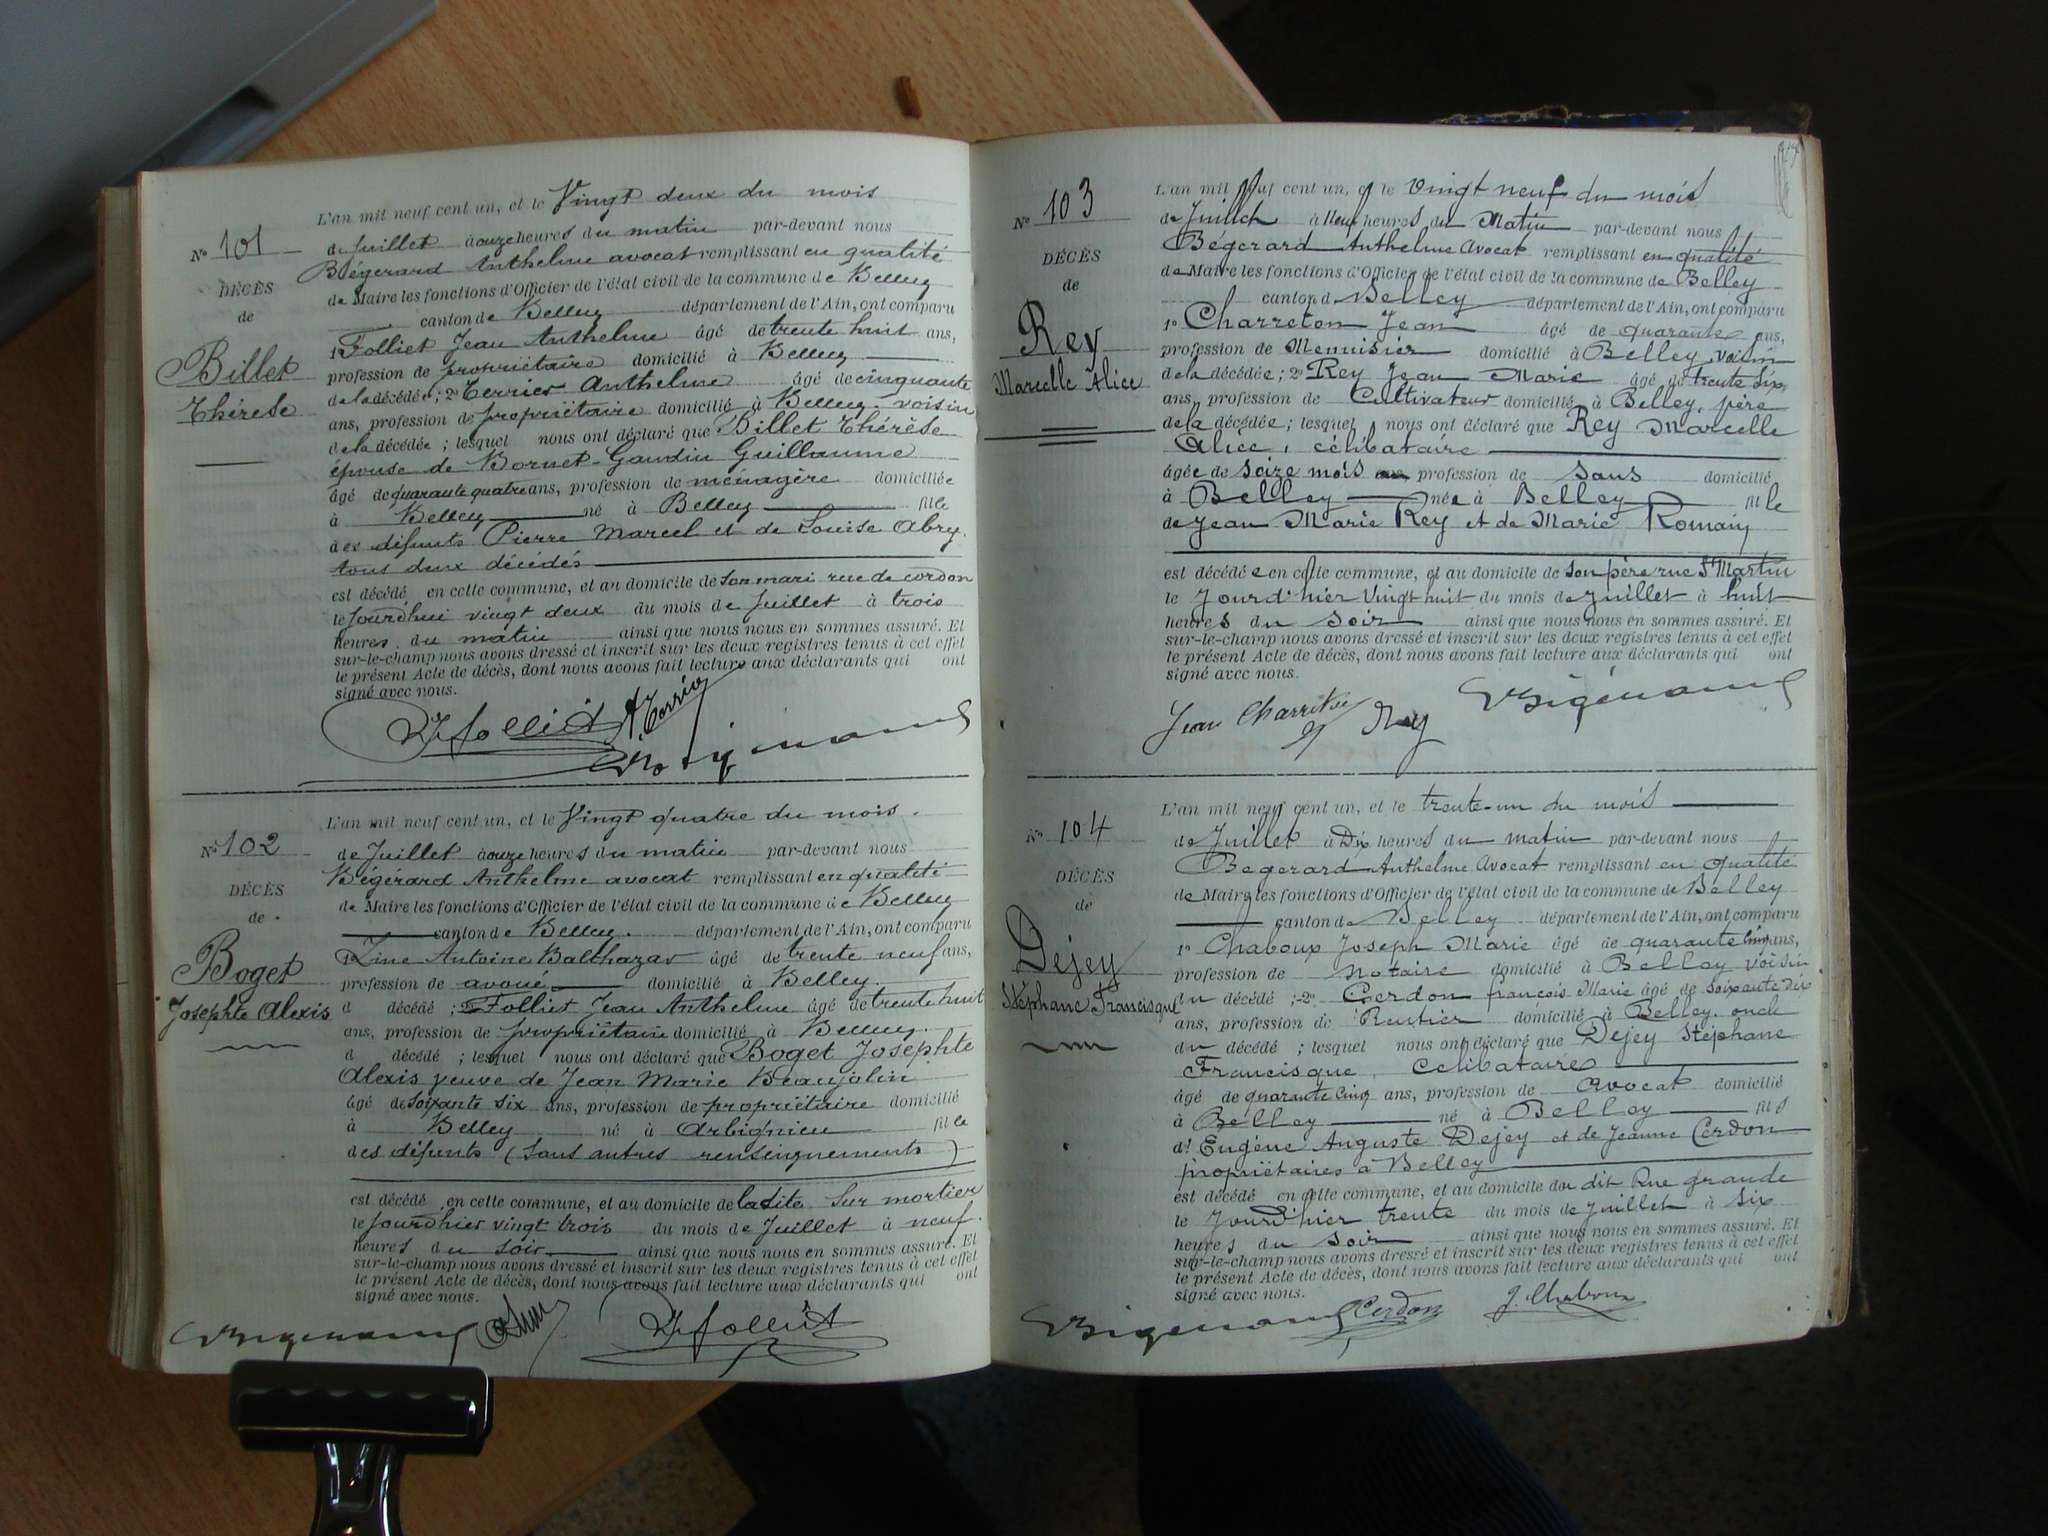 L'an mil neuf cent un, et le Vingt deux du mois
N° 101
de Juillet à onze heures du matin par-devant nous
Bégérard Anthelme avocat remplissant en qualité
DÉCÈS
de Maire les fonctions d'Officier de l'état civil de la commune de Belley
de
canton de Belley département de l'Ain, ont comparu
1° Folliet Jean Anthelme âgé de trente huit ans,
Billet
profession de propriétaire domicilié à Belley
Thérèse
de la décédée; 2° Terrier Anthelme âgé de cinquante
ans, profession de propriétaire domicilié à Belley. voisin
de la décédée; lesquel nous ont déclaré que Billet Thérèse
épouse de Bornet-Gaudin Guillaume
âgé de quarante quatre ans, profession de ménagère domiciliée
à Belley né à Belley fille
des défunts Pierre Marcel et de Louise Abry.
tous deux décédés
est décédé en cette commune, et au domicile de son mari rue de cordon
le Jourd'hui vingt deux du mois de Juillet à trois
heures du matin ainsi que nous nous en sommes assuré. Et
sur-le-champ nous avons dressé et inscrit sur les deux registres tenus à cet effet
le présent Acte de décès, dont nous avons fait lecture aux déclarants qui ont
signé avec nous.
Folliet A Terrier
L'an mil neuf cent un, et le Vingt quatre du mois.
N° 102
de Juillet à onze heures du matin par-devant nous
Bégérard Anthelme avocat remplissant en qualité
DÉCÈS
de Maire les fonctions d'Officier de l'état civil de la commune de Belley
de
canton de Belley. département de l'Ain, ont comparu
Antoine Balthazar âgé de trente neuf ans,
Boget
profession de avoué domicilié à Belley.
Josephte Alexis
d décédé; 2° Folliet Jean Anthelme âgé de trente huit
ans, profession de propriétaire domicilié à Belley.
d décédé; lesquel nous ont déclaré que Boget Josephte
Alexis veuve de Jean Marie Beaujolin
âgé de soixante six ans, profession de propriétaire domicilié
à Belley né à Arbignieu fille
des défunts (sans autres renseignements)
est décédé en cette commune, et au domicile de ladite sur mortier
le Jourd'hier vingt trois du mois de Juillet à neuf.
heures du soir ainsi que nous nous en sommes assuré. Et
sur-le-champ nous avons dressé et inscrit sur les deux registres tenus à cet effet
le présent Acte de décès, dont nous avons fait lecture aux déclarants qui ont
signé avec nous.
Folliet
L'an mil neuf cent un, et le vingt neuf du mois
N° 103
de Juillet à Neuf heures du Matin par-devant nous
Bégerard Anthelme Avocat remplissant en qualité
DÉCÈS
de Maire les fonctions d'Officier de l'état civil de la commune de Belley
de
canton d Belley département de l'Ain, ont comparu
1° Charreton Jean âgé de quarante ans,
Rey
profession de Menuisier domicilié à Belley, voisin
Marcelle Alice
de la décédée; 2° Rey Jean Marie âgé de trente six
ans, profession de Cultivateur domicilié à Belley, père
de la décédée; lesquel nous ont déclaré que Rey Marcelle
Alice, célibataire
âgée de seize mois ans profession de sans domicilié
à Belley née à Belley fille
de Jean Marie Rey et de Marie Romain
est décédée en cette commune, et au domicile de son père rue St Martin
le Jourd'hier Vingt huit du mois de Juillet à huit
heures du Soir ainsi que nous nous en sommes assuré. Et
sur-le-champ nous avons dressé et inscrit sur les deux registres tenus à cet effet
le présent Acte de décès, dont nous avons fait lecture aux déclarants qui ont
signé avec nous.
Jean Charreton Rey
L'an mil neuf cent un, et le trente-un du mois
N° 104
de Juillet à Dix heures du matin par-devant nous
Begerard Anthelme Avocat remplissant en qualité
DÉCÈS
de Maire les fonctions d'Officier de l'état civil de la commune de Belley
de
canton de Belley département de l'Ain, ont comparu
1° Chaboux Joseph Marie âgé de quarante cinq ans,
Dejey
profession de Notaire domicilié à Belley voisin
Stéphane Francisque
du décédé; 2° Cerdon françois Marie âgé de soixante dix
ans, profession de Rentier domicilié à Belley. oncle
du décédé; lesquel nous ont déclaré que Dejey Stéphane
Francisque, Celibataire
âgé de quarante cinq ans, profession de Avocat domicilié
à Belley né à Belley fils
d'Eugéne Auguste Dejey et de Jeanne Cerdon
propriétaires à Belley
est décédé en cette commune, et au domicile du dit Rue grande
le Jourd'hier trente du mois de Juillet à six
heures du Soir ainsi que nous nous en sommes assuré. Et
sur-le-champ nous avons dressé et inscrit sur les deux registres tenus à cet effet
le présent Acte de décès, dont nous avons fait lecture aux déclarants qui ont
signé avec nous.
Cerdon J. Chaboux